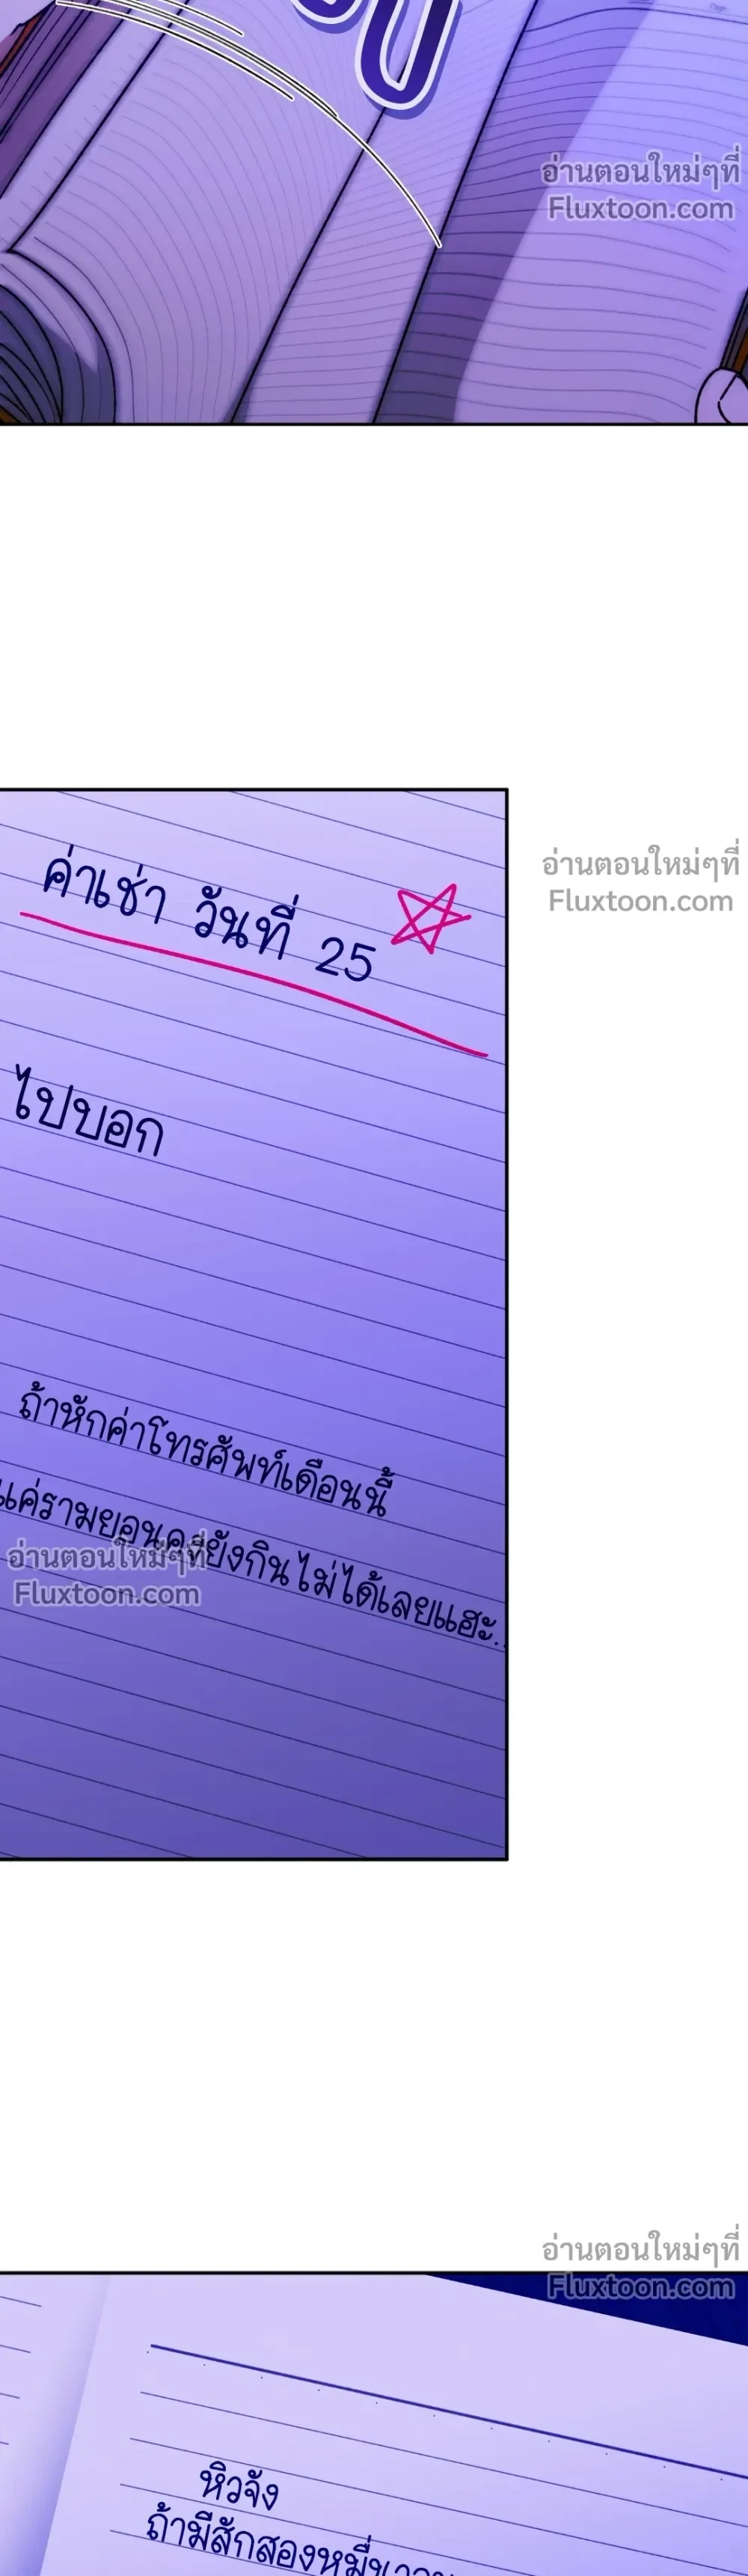 อ่านตอนใหม่ๆที่
Fluxtoon.com
อ่านตอนใหม่ๆที่
Fluxtoon.com
ค่าเช่า วันที่ 25
ไปบอก
ถ้าหักค่าโทรศัพท์เดือนนี้
แค่รามยอนคู่ยังกินไม่ได้เลยแฮะ..
อ่านตอนใหม่ๆที่
Fluxtoon.com
อ่านตอนใหม่ๆที่
Fluxtoon.com
หิวจัง
ถ้ามีสักสองหมื่น